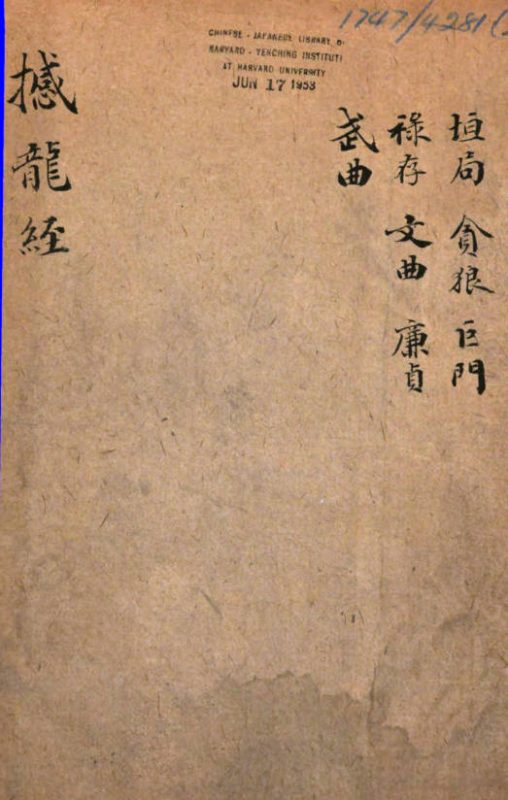 1747/4281(
CHINESE - JAPANESE LIBRARY O
HARVARD - YENCHING INSTITUTI
AT HARVARD UNIVERSITY
JUN 17 1953
垣局 貪狼 巨門
祿存 文曲 廉貞
武曲
撼龍經